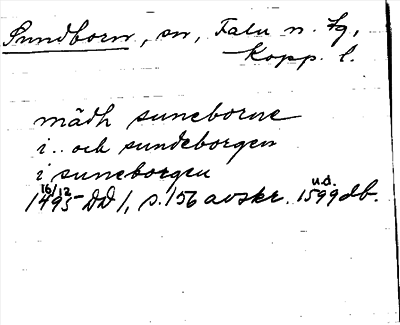 Sundborn, sn, Falu n. tg,
Kopp. l.
mädh suneborne
i .. och sundeborgen
i suneborgen
16/12 1495 DD 1, s. 156 avskr. u.d. 1599 db.